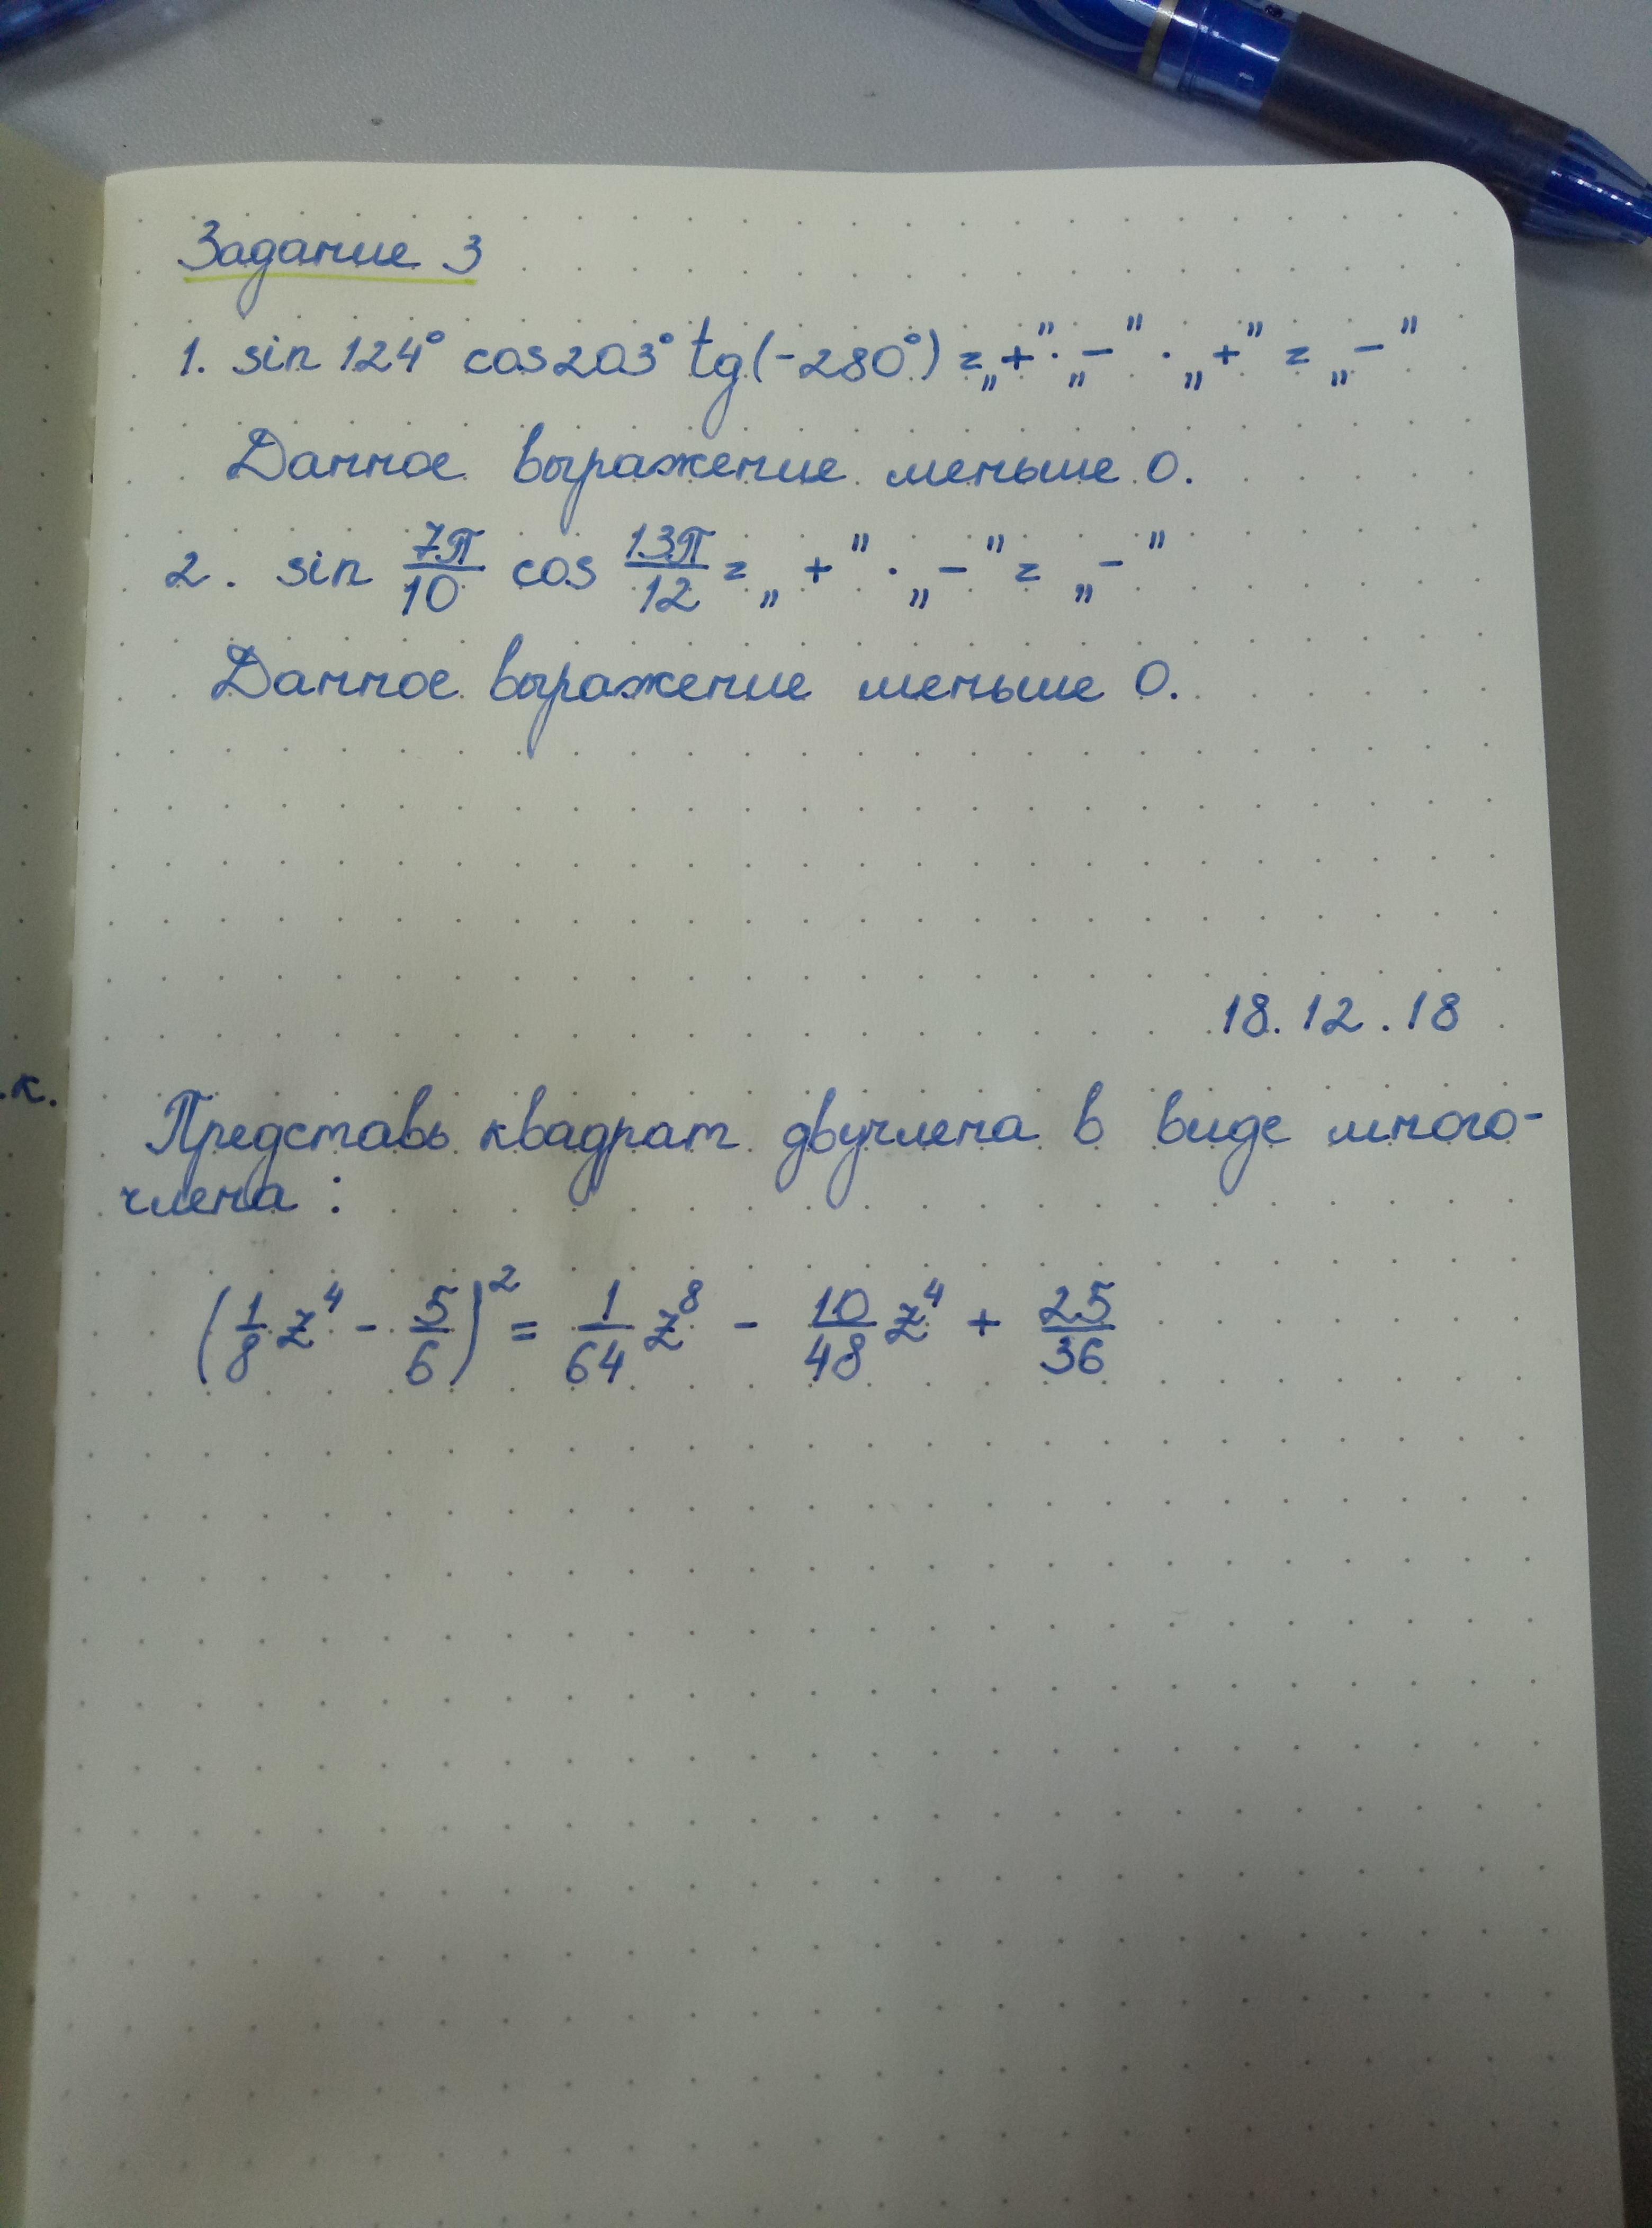 Задание 3
1. sin 124° cos 203° tg(-280°) = „+” · „-” · „+” = „-”
Данное выражение меньше 0.
2. sin 7π/10 cos 13π/12 = „+” · „-” = „-”
Данное выражение меньше 0.
18.12.18
.к.
Представь квадрат двучлена в виде много-
члена :
(1/8 z⁴ - 5/6)² = 1/64 z⁸ - 10/48 z⁴ + 25/36